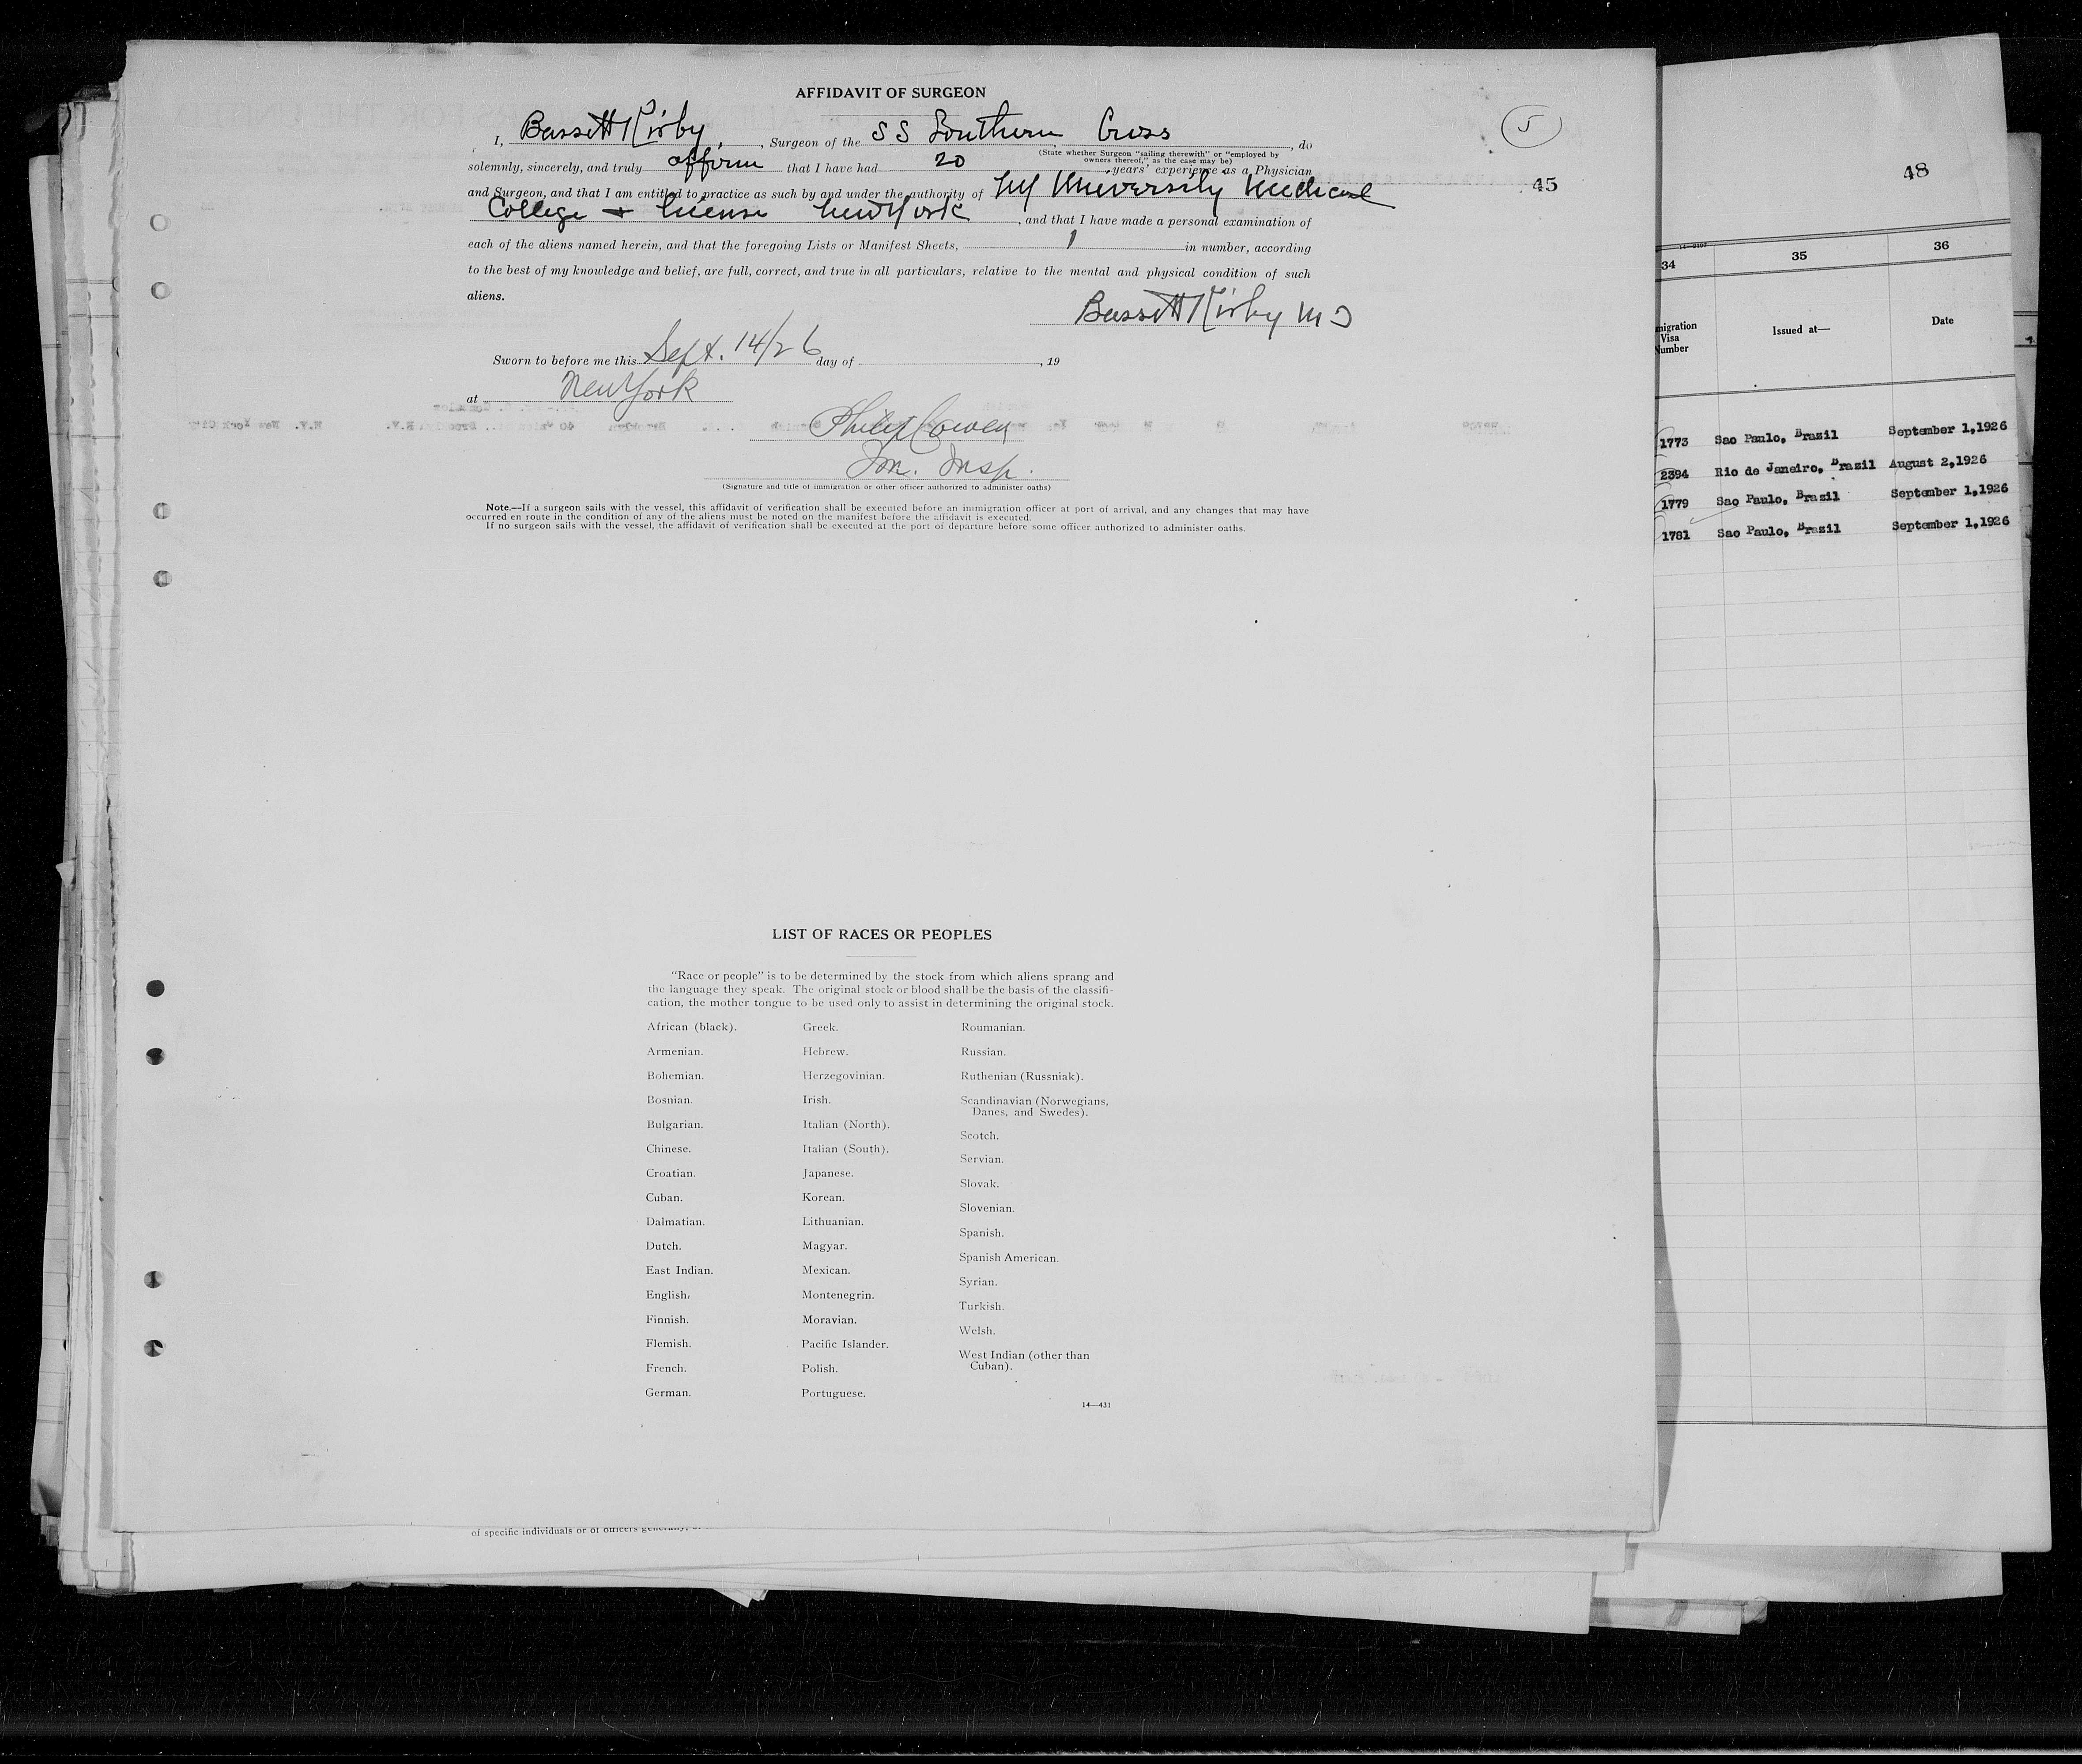 AFFIDAVIT OF SURGEON
5
I, Bassett Kirby, , Surgeon of the SS Southern Cross , do
(State whether Surgeon "sailing therewith" or "employed by
owners thereof," as the case may be)
solemnly, sincerely, and truly affirm that I have had 20 years' experience as a Physician
and Surgeon, and that I am entitled to practice as such by and under the authority of NY University Medical
45
College + license New York , and that I have made a personal examination of
each of the aliens named herein, and that the foregoing Lists or Manifest Sheets, 1 in number, according
to the best of my knowledge and belief, are full, correct, and true in all particulars, relative to the mental and physical condition of such
aliens.
Bassett Kirby MD
Sworn to before me this Sept. 14/26 day of , 19
at New York
Philip Cowen
Im. Insp.
(Signature and title of immigration or other officer authorized to administer oaths)
Note.—If a surgeon sails with the vessel, this affidavit of verification shall be executed before an immigration officer at port of arrival, and any changes that may have
occurred en route in the condition of any of the aliens must be noted on the manifest before the affidavit is executed.
If no surgeon sails with the vessel, the affidavit of verification shall be executed at the port of departure before some officer authorized to administer oaths.
LIST OF RACES OR PEOPLES
"Race or people" is to be determined by the stock from which aliens sprang and
the language they speak. The original stock or blood shall be the basis of the classifi-
cation, the mother tongue to be used only to assist in determining the original stock.
African (black).
Armenian.
Bohemian.
Bosnian.
Bulgarian.
Chinese.
Croatian.
Cuban.
Dalmatian.
Dutch.
East Indian.
English.
Finnish.
Flemish.
French.
German.
Greek.
Hebrew.
Herzegovinian.
Irish.
Italian (North).
Italian (South).
Japanese.
Korean.
Lithuanian.
Magyar.
Mexican.
Montenegrin.
Moravian.
Pacific Islander.
Polish.
Portuguese.
Roumanian.
Russian.
Ruthenian (Russniak).
Scandinavian (Norwegians,
Danes, and Swedes).
Scotch.
Servian.
Slovak.
Slovenian.
Spanish.
Spanish American.
Syrian.
Turkish.
Welsh.
West Indian (other than
Cuban).
14—431
of specific individuals or of officers
48
34 35 36
Visa Issued at— Date
1773 Sao Paulo, Brazil September 1,1926
2394 Rio de Janeiro, Brazil August 2,1926
1779 Sao Paulo, Brazil September 1,1926
1781 Sao Paulo, Brazil September 1,1926